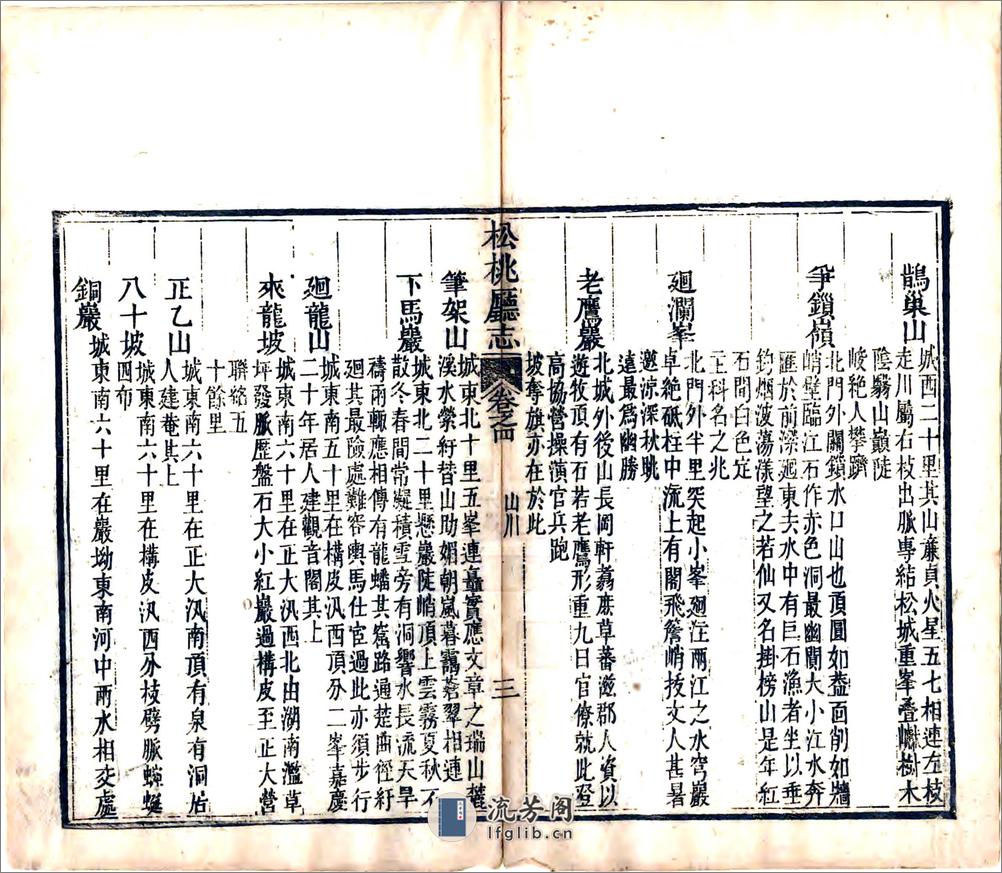 鵲巢山
城西二十里其山廉貞火星五七相連左枝
走川屬右枝出脈專結松城重峯疊巘樹木
陰翳山巔陡
峻絶人攀躋
爭鎖嶺
北門外關鎖水口山也頂圓如葢面削如牆
峭壁臨江石作赤色洞最幽闃大小江水奔
匯於前深迥東夫水中有巨石漁者坐以垂
釣烟波蕩漾望之若仙又名掛榜山是年紅
石間白色定
主科名之兆
廻瀾峯
北門外半里突起小峯廻注兩江之水穹巖
卓絶砥柱中流上有閣飛簷峭拔文人甚暑
邀涼深秋眺
遠最爲幽勝
老鷹巖
北城外後山長岡軒翥庶草蕃滋郡人資以
遊牧頂有石若老鷹形重九日官僚就此登
高協營操演官兵跑
坡奪旗亦在於此
松桃廳志 卷之四 山川 三
筆架山
城東北十里五峯連矗實應文章之瑞山麓
溪水縈紆替山助媚朝嵐暮靄蒼翠相連
下馬巖
城東北二十里懸巖陡峭頂上雲霧夏秋不
散冬春間常凝積雪旁有洞響水長流天旱
禱雨輒應相傳有龍蟠其窟路通楚曲徑紆
廻其最險處難容輿馬仕宦過此亦須步行
廻龍山
城東南五十里在構皮汛西頂分二峯嘉慶
二十年居人建觀音閣其上
來龍坡
城東南六十里在正大汛西北由湖南濫草
坪發脈歷盤石大小紅巖過構皮至正大營
聯絡五
十餘里
正乙山
城東南六十里在正大汛南頂有泉有洞居
人建菴其上
八十坡
城東南六十里在構皮汛西分枝劈脈蜿蜒
四布
銅巖
城東南六十里在巖坳東南河中兩水相交處
流芳阁
lfglib.cn